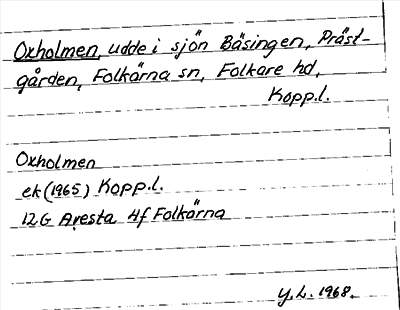 Oxholmen, udde i sjön Bäsingen, Präst-
gården, Folkärna sn, Folkare hd,
Kopp.l.
Oxholmen
ek (1965) Kopp.l.
12G Avesta 4f Folkärna
Y.L. 1968.